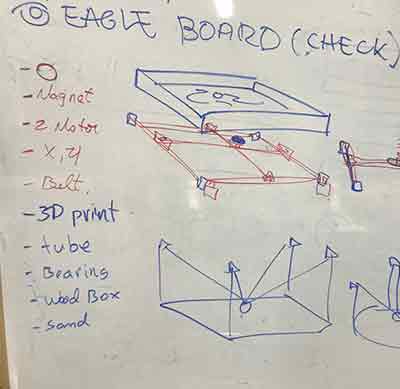 EAGLE BOARD (CHECK)
- O
- Magnet
- 2 Motor
- X, Y
- Belt,
- 3D print
- tube
- Bearing
- Wood Box
- Sand